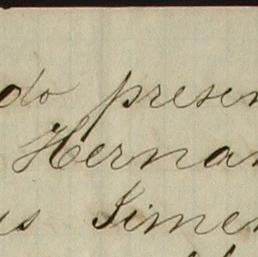 do presen
Hernan
us Simen